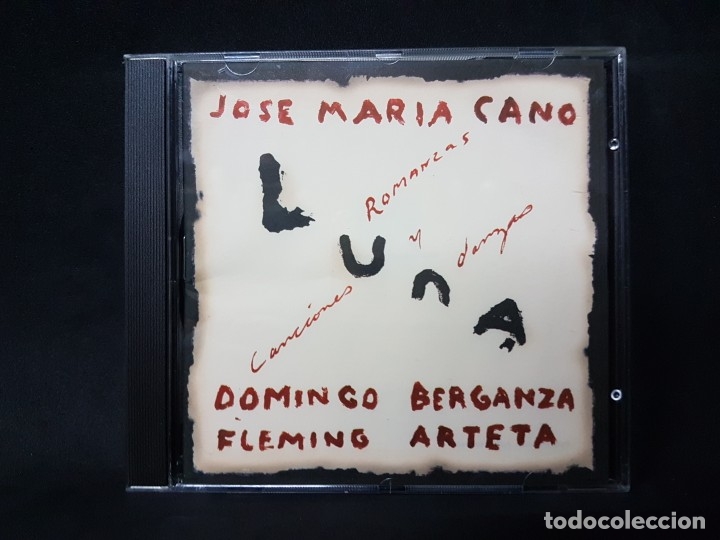 JOSE MARIA CANO
LUNA
Canciones
ROMANZAS
y
danzas
DOMINGO BERGANZA
FLEMING ARTETA
todocoleccion.net